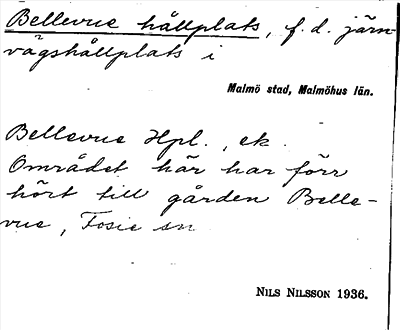 Bellevue hållplats, f. d. järn-
vägshållplats i
Malmö stad, Malmöhus län.
Bellevue Hpl., ek.
Området här har förr
hört till gården Belle-
vue, Fosie sn
NILS NILSSON 1936.